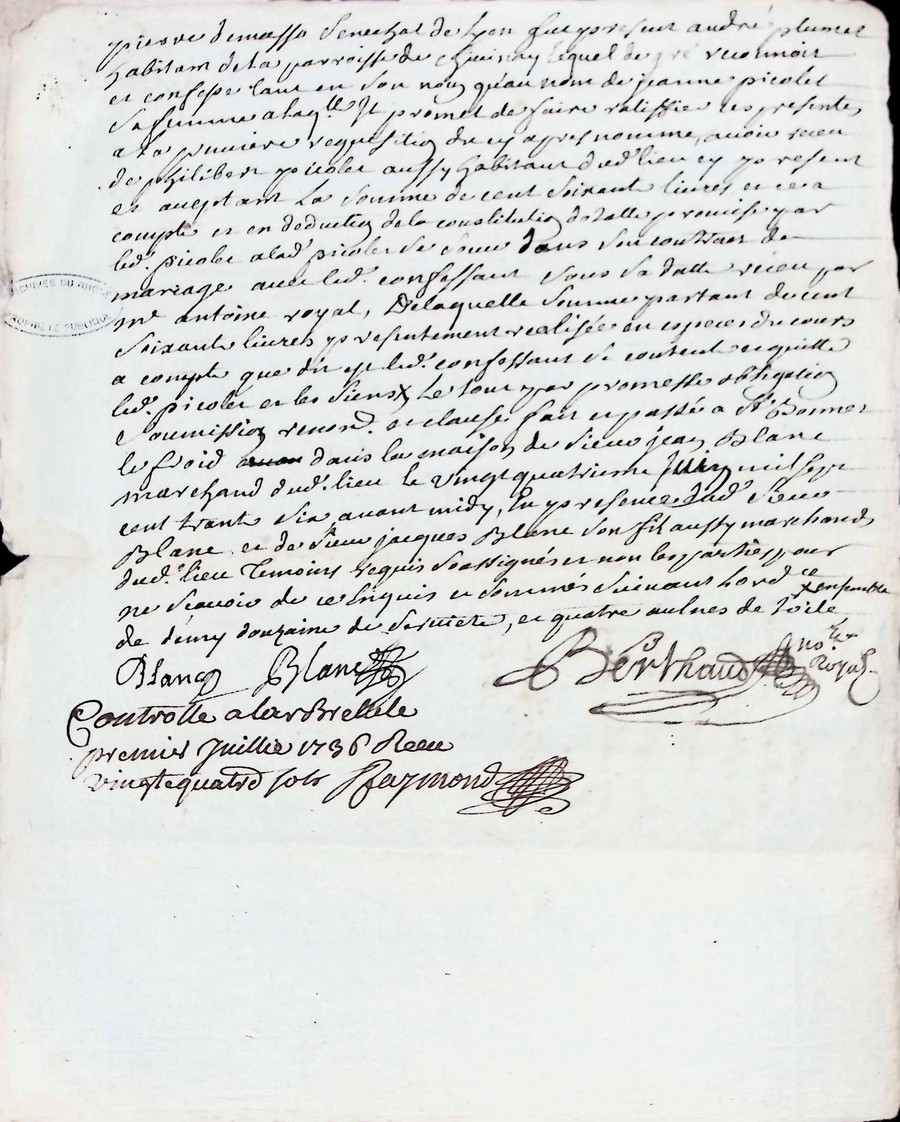 pierre demasso senechal de Lyon fut present andré plumet
habitant de la parroisse de lequel de gré reconnoit
et confesse tant en son nom quau nom de jeanne picolet
sa femme a laqlle Il promet de faire ratiffier les presentes
a la premiere requisition du cy apres nommé, avoir receu
de philibert picolet aussy habitant dud. lieu cy present
et aceptant la somme de cent soixante livres et ce a
compte et en deduction de la constitution dotalle promise par
led. picolet a lad. picolet sa soeur dans son contract de
mariage avec led. confessant sous sa datte receu par
me antoine royal, De laquelle somme partant de cent
soixante livres presentement realisée en especes du cours
a compte que dit est led. confessant se contente et quitte
led. picolet et les siens x Le tout par promesse obligation
soumission renond. et clause fait et passé a St Bonnet
le froid dans la maison de sieur jean Blanc
marchand dud. lieu le vingt quatrieme juin mil sept
cent trante six avant midy, En presence dud. sieur
Blanc et de sieur jacques Blanc son fils aussy marchand
dud. lieu temoins requis soussignés et non les parties pour
ne scavoir de ce enquis et sommés suivant lord ce
x ensemble
de demy douzaine de serviete, et quatre aulnes de toile
Blanc Blanc Berthaud nore Royal
Controllé a larBrelle le
premier Juillie 1736 Receu
vingtequatre sols Raymond
ARCHIVES DU RHÔNE
PROPRIÉTÉ PUBLIQUE